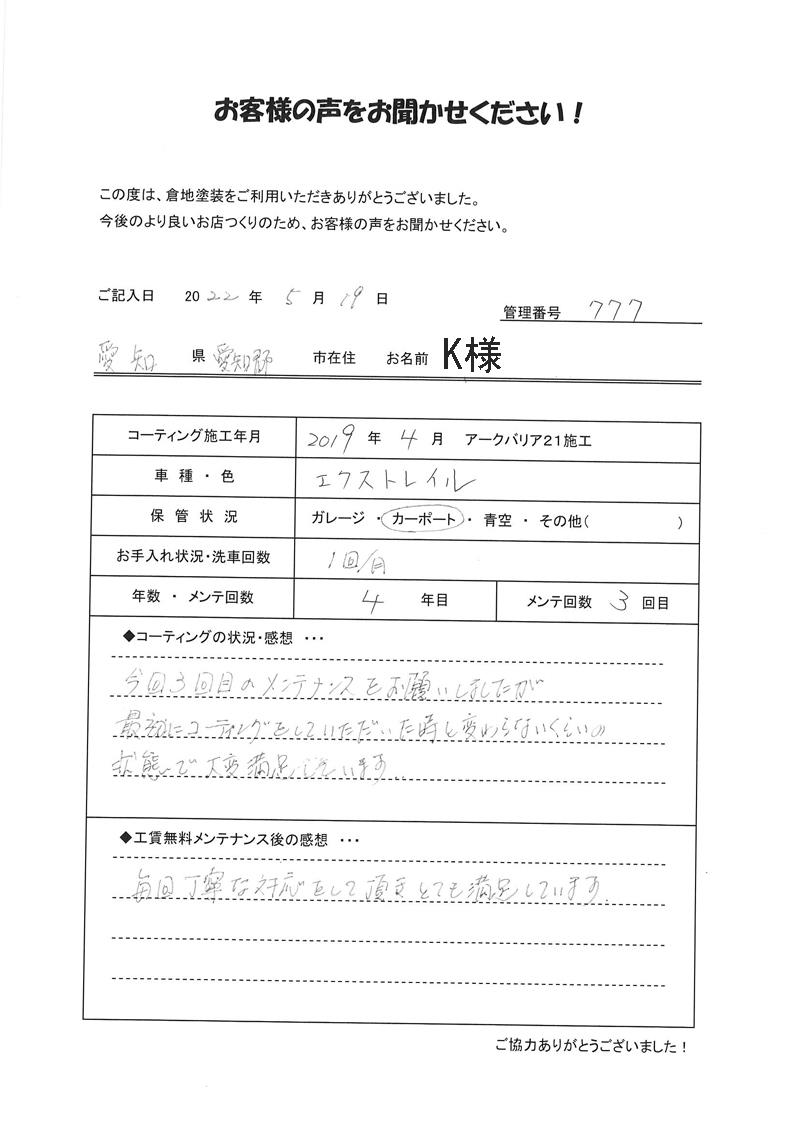 お客様の声をお聞かせください！
この度は、倉地塗装をご利用いただきありがとうございました。
今後のより良いお店つくりのため、お客様の声をお聞かせください。
ご記入日 2022 年 5 月 19 日
管理番号 777
愛知 県 愛知郡 市在住 お名前 K様
コーティング施工年月 2019 年 4 月 アークバリア21施工
車種・色 エクストレイル
保管状況 ガレージ ・ カーポート ・ 青空 ・ その他( )
お手入れ状況・洗車回数 1回/月
年数 ・ メンテ回数 4 年目 メンテ回数 3 回目
◆コーティングの状況・感想 ・・・
今回3回目のメンテナンスをお願いしましたが
最初にコーティングをしていただいた時と変わらないくらいの
状態で大変満足しています。
◆工賃無料メンテナンス後の感想 ・・・
毎回丁寧な対応をして頂きとても満足しています。
ご協力ありがとうございました！